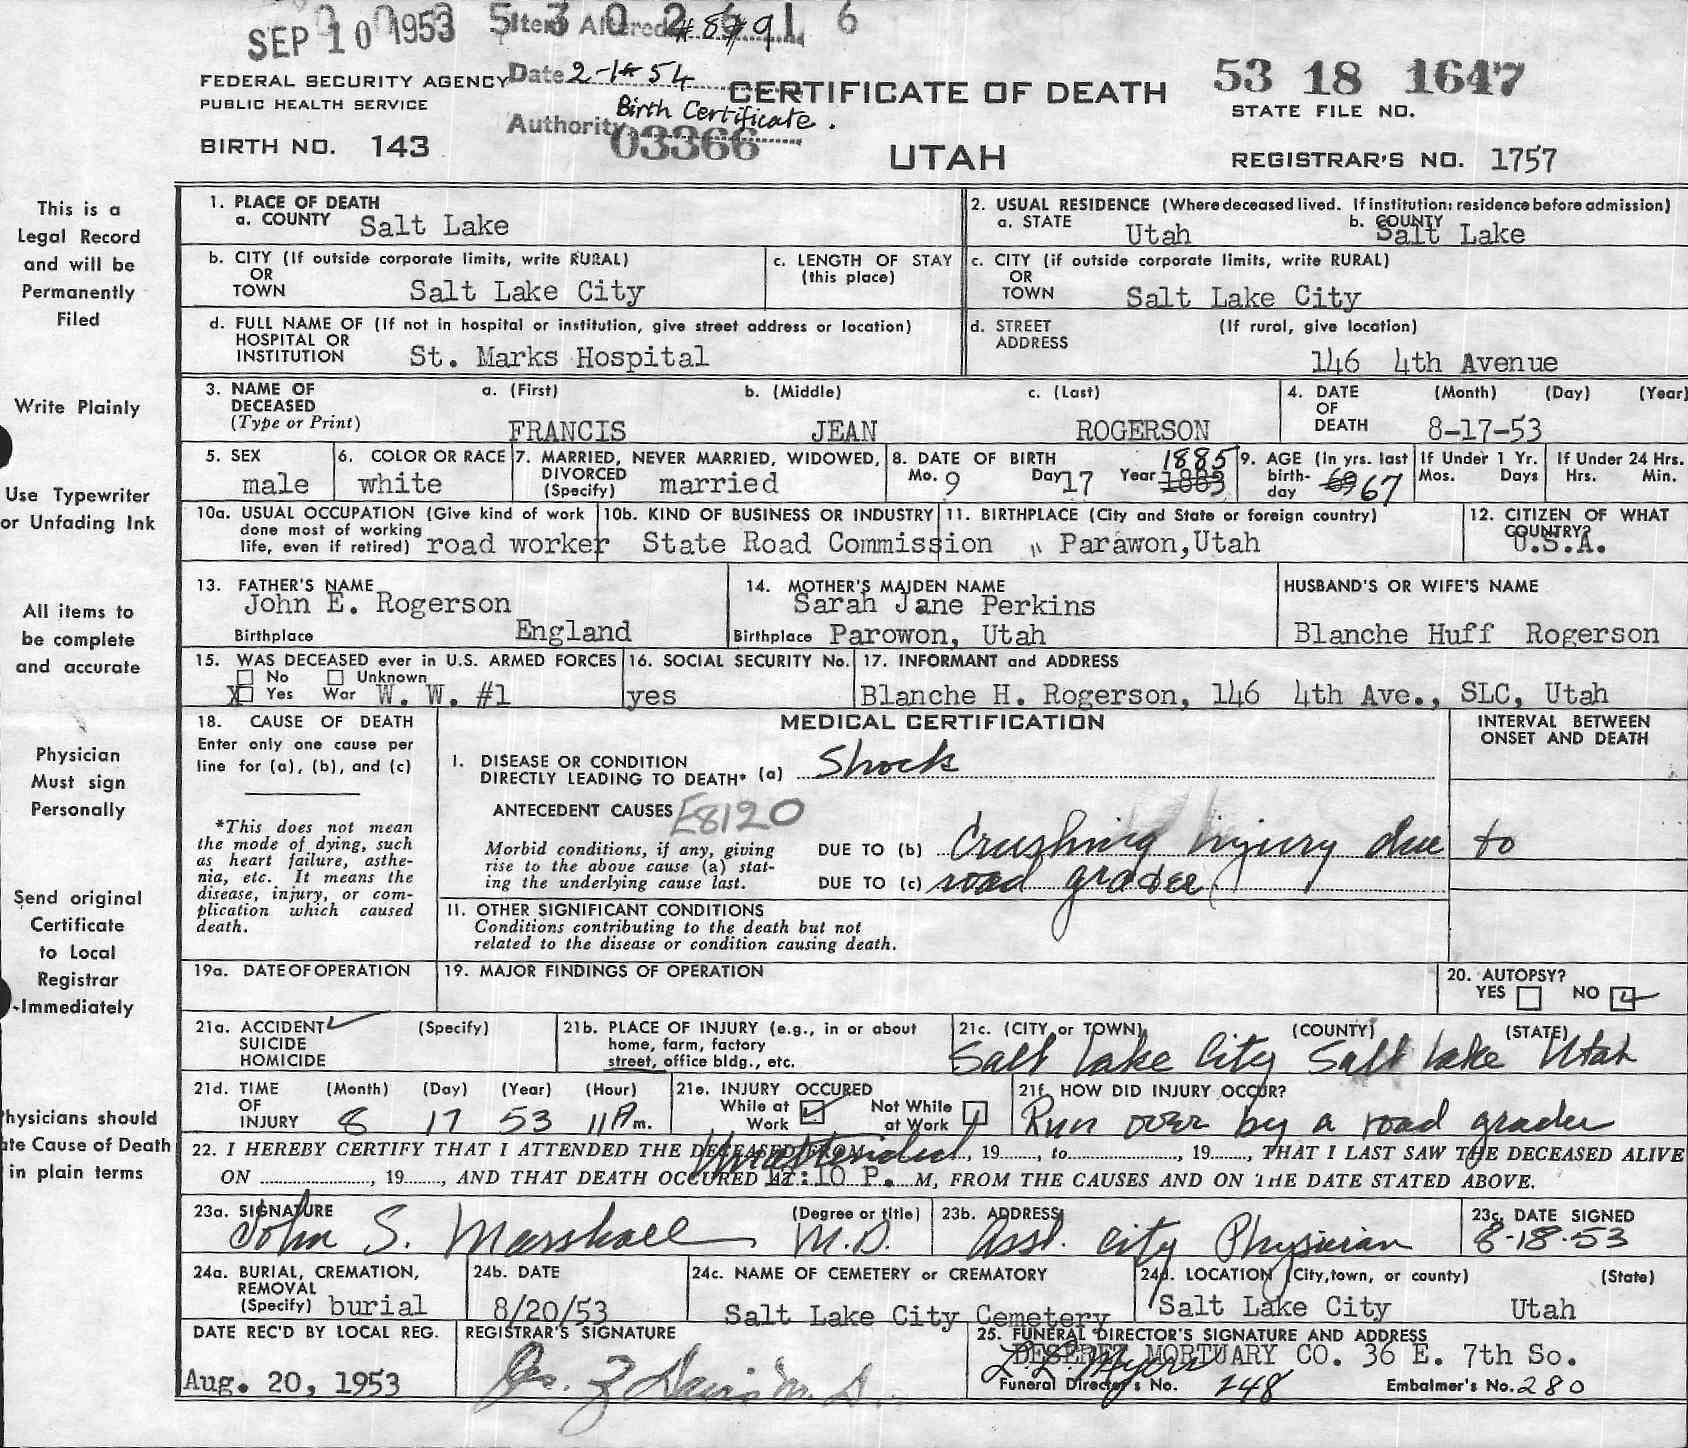 SEP 10 1953 5302616
Item Altered #8 #9
FEDERAL SECURITY AGENCY Date 2-1-54 CERTIFICATE OF DEATH 53 18 1647
PUBLIC HEALTH SERVICE Birth Certificate. STATE FILE NO.
Authority 03366
BIRTH NO. 143 UTAH REGISTRAR'S NO. 1757
This is a
Legal Record
and will be
Permanently
Filed
Write Plainly
Use Typewriter
or Unfading Ink
All items to
be complete
and accurate
Physician
Must sign
Personally
Send original
Certificate
to Local
Registrar
Immediately
hysicians should
ate Cause of Death
in plain terms
1. PLACE OF DEATH
a. COUNTY Salt Lake
2. USUAL RESIDENCE (Where deceased lived. If institution: residence before admission)
a. STATE Utah b. COUNTY Salt Lake
b. CITY (If outside corporate limits, write RURAL)
OR
TOWN Salt Lake City
c. LENGTH OF STAY
(this place)
c. CITY (if outside corporate limits, write RURAL)
OR
TOWN Salt Lake City
d. FULL NAME OF (If not in hospital or institution, give street address or location)
HOSPITAL OR
INSTITUTION St. Marks Hospital
d. STREET (If rural, give location)
ADDRESS
146 4th Avenue
3. NAME OF a. (First) b. (Middle) c. (Last)
DECEASED
(Type or Print) FRANCIS JEAN ROGERSON
4. DATE (Month) (Day) (Year)
OF
DEATH 8-17-53
5. SEX
male
6. COLOR OR RACE
white
7. MARRIED, NEVER MARRIED, WIDOWED,
DIVORCED
(Specify) married
8. DATE OF BIRTH 1885
Mo. 9 Day 17 Year 1883
9. AGE (In yrs. last
birth-
day 69 67
If Under 1 Yr.
Mos. Days
If Under 24 Hrs.
Hrs. Min.
10a. USUAL OCCUPATION (Give kind of work
done most of working
life, even if retired) road worker
10b. KIND OF BUSINESS OR INDUSTRY
State Road Commission
11. BIRTHPLACE (City and State or foreign country)
" Parawon, Utah
12. CITIZEN OF WHAT
COUNTRY?
U.S.A.
13. FATHER'S NAME
John E. Rogerson
Birthplace England
14. MOTHER'S MAIDEN NAME
Sarah Jane Perkins
Birthplace Parowon, Utah
HUSBAND'S OR WIFE'S NAME
Blanche Huff Rogerson
15. WAS DECEASED ever in U.S. ARMED FORCES
No Unknown
X Yes War W. W. #1
16. SOCIAL SECURITY No.
yes
17. INFORMANT and ADDRESS
Blanche H. Rogerson, 146 4th Ave., SLC, Utah
18. CAUSE OF DEATH
Enter only one cause per
line for (a), (b), and (c)
*This does not mean
the mode of dying, such
as heart failure, asthe-
nia, etc. It means the
disease, injury, or com-
plication which caused
death.
MEDICAL CERTIFICATION
INTERVAL BETWEEN
ONSET AND DEATH
I. DISEASE OR CONDITION
DIRECTLY LEADING TO DEATH* (a) Shock
ANTECEDENT CAUSES E8120
Morbid conditions, if any, giving
rise to the above cause (a) stat-
ing the underlying cause last.
DUE TO (b) Crushing injury due to
DUE TO (c) road grader
II. OTHER SIGNIFICANT CONDITIONS
Conditions contributing to the death but not
related to the disease or condition causing death.
19a. DATE OF OPERATION
19. MAJOR FINDINGS OF OPERATION
20. AUTOPSY?
YES NO
21a. ACCIDENT ✓ (Specify)
SUICIDE
HOMICIDE
21b. PLACE OF INJURY (e.g., in or about
home, farm, factory
street, office bldg., etc.
21c. (CITY or TOWN) (COUNTY) (STATE)
Salt Lake City Salt Lake Utah
21d. TIME (Month) (Day) (Year) (Hour)
OF
INJURY 8 17 53 11 A m.
21e. INJURY OCCURED
While at Work Not While at Work
21f. HOW DID INJURY OCCUR?
Run over by a road grader
22. I HEREBY CERTIFY THAT I ATTENDED THE DECEASED FROM Unattended, 19....., to..............., 19....., THAT I LAST SAW THE DECEASED ALIVE
ON ..............., 19....., AND THAT DEATH OCCURED AT :10 P. M, FROM THE CAUSES AND ON THE DATE STATED ABOVE.
23a. SIGNATURE (Degree or title)
John S. Marshall M.D.
23b. ADDRESS
Asst. City Physician
23c. DATE SIGNED
8-18-53
24a. BURIAL, CREMATION,
REMOVAL
(Specify) burial
24b. DATE
8/20/53
24c. NAME OF CEMETERY or CREMATORY
Salt Lake City Cemetery
24d. LOCATION (City, town, or county) (State)
Salt Lake City Utah
DATE REC'D BY LOCAL REG.
Aug. 20, 1953
REGISTRAR'S SIGNATURE
Geo. Z Davis M.D.
25. FUNERAL DIRECTOR'S SIGNATURE AND ADDRESS
DESERET MORTUARY CO. 36 E. 7th So.
Myers
Funeral Director's No. 248 Embalmer's No. 280